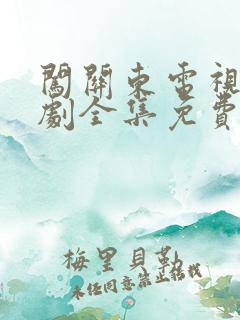 闖關東電視
劇全集免費
梅里貝勒
未任同意禁止转载